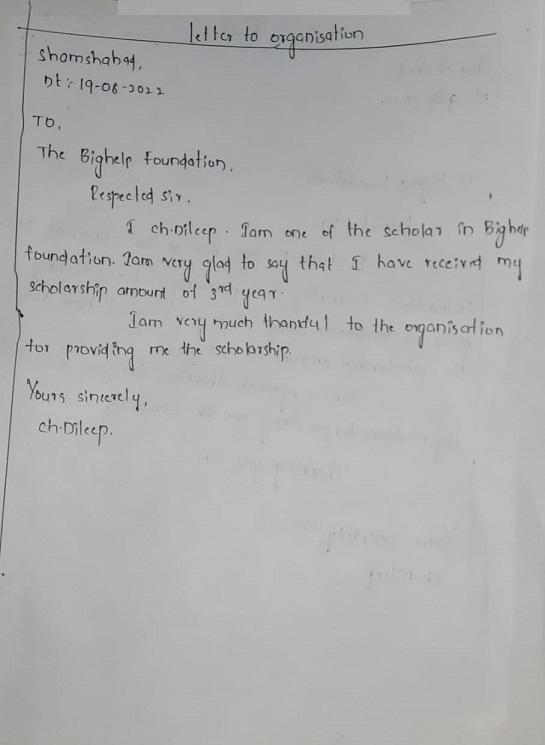 letter to organisation
Shamshabad,
Dt:- 19-08-2022
TO,
The Bighelp Foundation.
Respected sir.
I ch.Dileep. Iam one of the scholar in Bighelp
foundation. Iam very glad to say that I have received my
scholarship amount of 3rd year.
Iam very much thankful to the organisation
for providing me the scholarship.
Yours sincerely,
ch.Dileep.